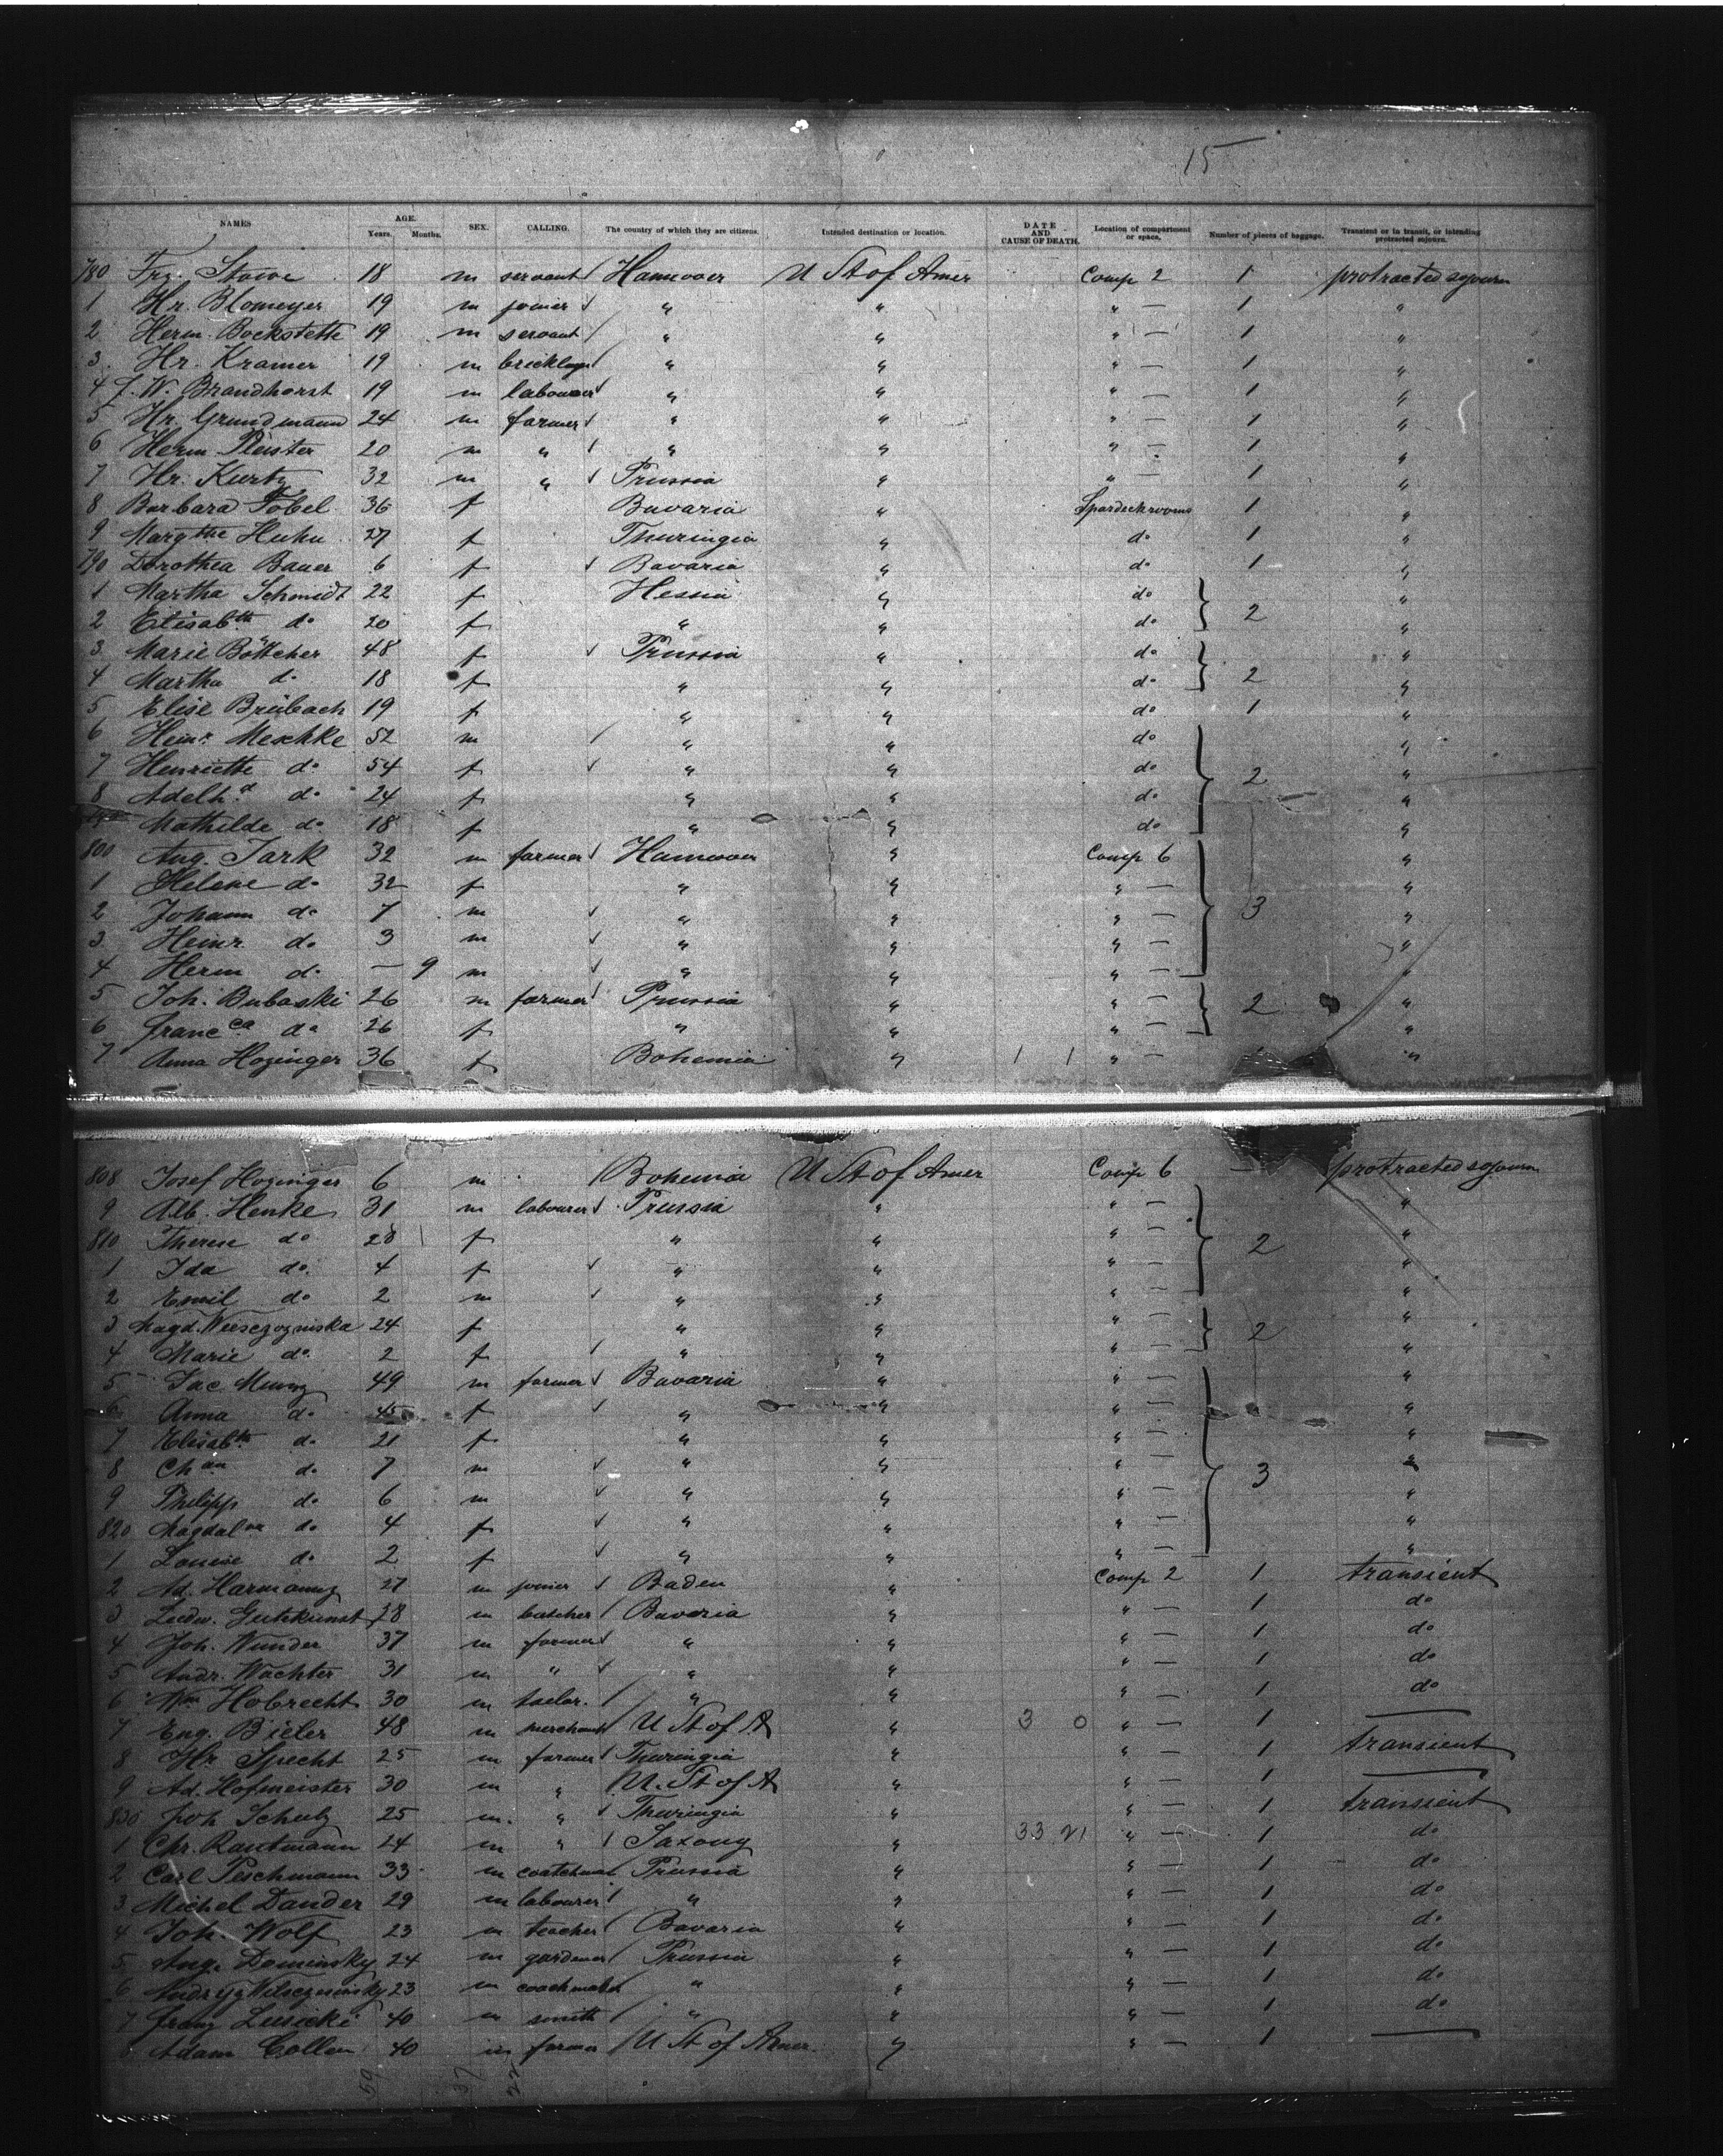 15
NAMES AGE. Years. Months. SEX. CALLING. The country of which they are citizens. Intended destination or location. DATE AND CAUSE OF DEATH. Location of compartment or space. Number of pieces of baggage. Transient or in transit, or intending protracted sojourn.
780 Frz. Stowe 18 m servant Hannover U St of Amer Comp 2 1 protracted sojourn
1 Hr. Blomeyer 19 m joiner " " " — 1 "
2 Herm. Bockstette 19 m servant " " " — 1 "
3 Hr. Kramer 19 m bricklayer " " " — 1 "
4 F. W. Brandhorst 19 m labourer " " " — 1 "
5 Hr. Grundmann 24 m farmer " " " — 1 "
6 Herm. Pleister 20 m " " " " — 1 "
7 Hr. Kurtz 32 m " Prussia " " — 1 "
8 Barbara Tobel 36 f Bavaria " Spardeckrooms 1 "
9 Margthe Huhn 27 f Thuringia " do 1 "
790 Dorothea Bauer 6 f Bavaria " do 1 "
1 Martha Schmidt 22 f Hessia " do "
2 Elisabth do 20 f " " do 2 "
3 Marie Böttcher 48 f Prussia " do "
4 Martha do 18 f " " do 2 "
5 Elise Brübach 19 f " " do 1 "
6 Heinr. Meschke 52 m " " do "
7 Henriette do 54 f " " do 2 "
8 Adelhd do 24 f " " do "
Mathilde do 18 f " " do "
800 Aug. Tark 32 m farmer Hannover " Comp 6 "
1 Helene do 32 f " " " — "
2 Johann do 7 m " " " — 3 "
3 Heinr. do 3 m " " " — "
4 Herm do — 9 m " " " — "
5 Joh. Bubaski 26 m farmer Prussia " " — 2 "
6 Francca do 26 f " " " — "
7 Anna Hozinger 36 f Bohemia " 1 1 " — "
808 Josef Hozinger 6 m Bohemia U St of Amer Comp 6 — protracted sojourn
9 Alb. Henke 31 m labourer Prussia " " — "
810 Therese do 28 f " " " — 2 "
1 Ida do 4 f " " " — "
2 Emil do 2 m " " " — "
3 Magd. 24 f " " " — 2 "
4 Marie do 2 f " " " — "
5 Jac. 49 m farmer Bavaria " " — "
6 Anna do 45 f " " " — "
7 Elisabth do 21 f " " " — "
8 Chan do 7 m " " " — 3 "
9 Philipp do 6 m " " " — "
820 Magdalne do 4 f " " " — "
1 Louise do 2 f " " " — "
2 Ad. Harmanny 27 m joiner Baden " Comp 2 1 transient
3 Ludw. Gutekunst 28 m butcher Bavaria " " — 1 do
4 Joh. Wunder 37 m farmer " " " — 1 do
5 Andr. Wachter 31 m " " " " — 1 do
6 Wm Hobrecht 30 m tailor. " " " — 1 do
7 Eug. Bieler 48 m merchant U St of A " 3 0 " — 1 —
8 Hr. Specht 25 m farmer Thuringia " " — 1 transient
9 Ad. Hofmeister 30 m " U. St of A " " — 1 —
830 Joh Schulz 25 m " Thuringia " " — 1 transient
1 Chr. Rautmann 24 m " Saxony " 33 21 " — 1 do
2 Carl Peschmann 33 m coatchman Prussia " " — 1 do
3 Michel Dander 29 m labourer " " " — 1 do
4 Joh. Wolf 23 m teacher Bavaria " " — 1 do
5 Aug. Dominsky 24 m gardener Prussia " " — 1 do
6 23 m coachmaker " " " — 1 do
7 Franz Lusicki 40 m smith " " " — 1 do
8 Adam Collen 40 m farmer U St of Amer. " " — 1 —
59 37 22